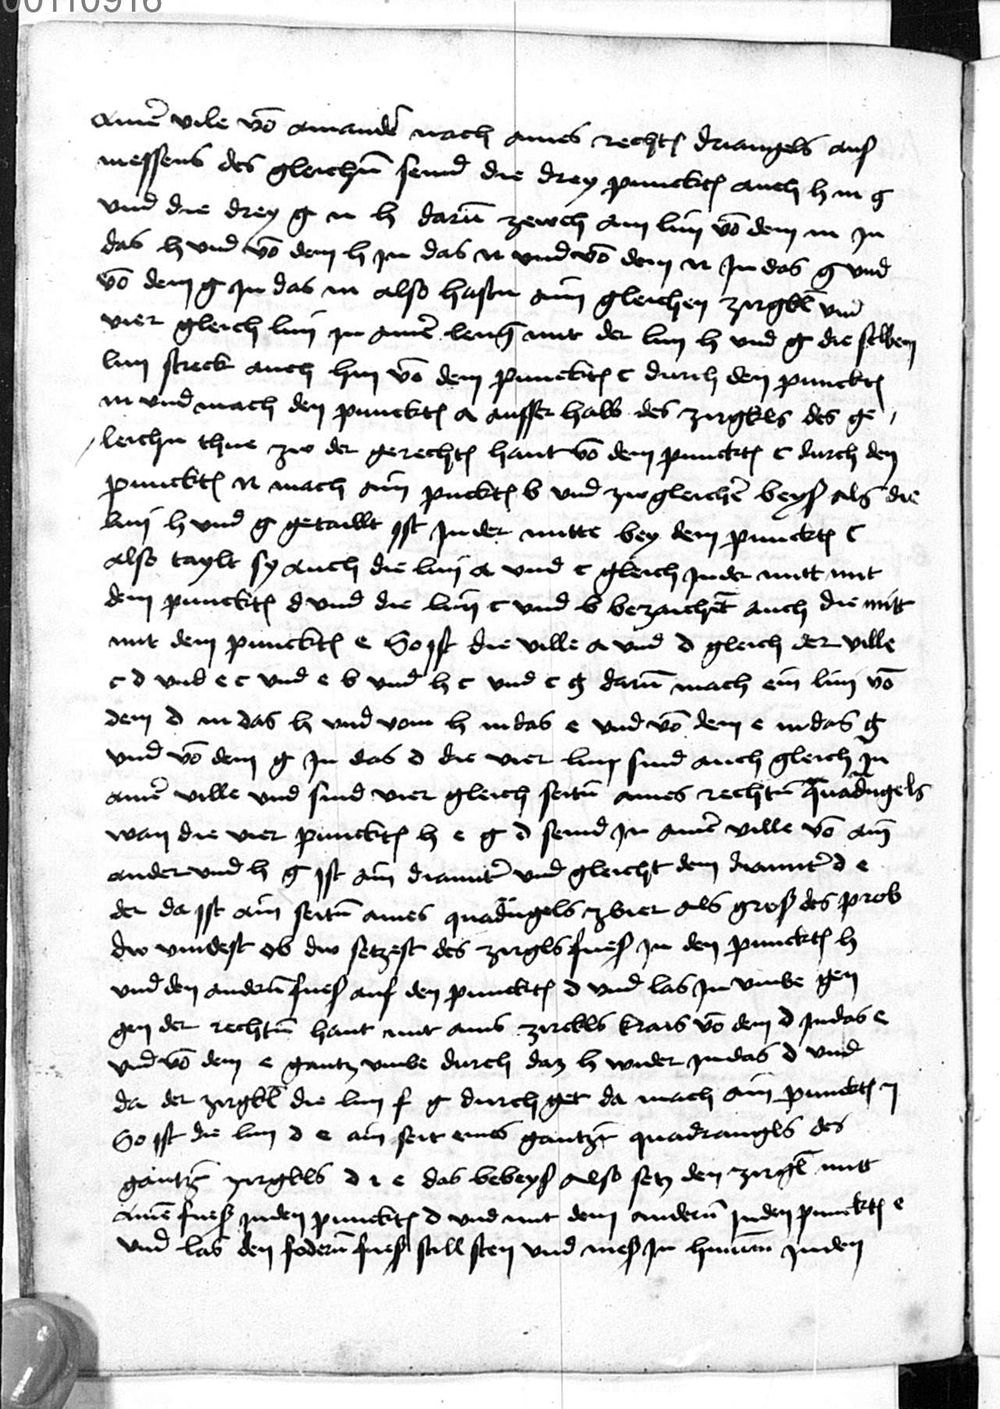 00110916
ainer vile vō ainander nach aines rechtē driangels aus
messens des gleichn̄ seind die drey punncktē auch h m g
vnd die drey g n h darūm zewch ain linj vō dem m jn
das h vnd vō dem h jn das n vnd vō dem n jn das g vnd
vō dem g jn das m also hastu ain gleichen zirgkl vnd
vier gleich linj jn ainer leng mit der linj h vnd g die selben
linj streck auch hin vō dem punncktē c durch den punncktē
m vnd mach den punncktē a ausser halb des zirgkls des ge
leichn thue zw der gerechtē hant vō dem punncktē c durch den
punncktē n mach ain punktē b vnd zw gleicher beys als die
linj h vnd g getailt jst jn der mitte bey dem punncktē c
also taylt sy auch die linj a vnd c gleich jn der mitt mit
dem punncktē d vnd die linj c vnd b bezaichēt auch die mitt
mit dem punncktē e So jst die ville a vnd d gleich der ville
c d vnd e c vnd e b vnd h c vnd c g darūm mach ein linj vō
dem d in das h vnd vom h in das e vnd vō dem e in das g
vnd vō dem g jn das d die vier linj sind auch gleich jn
ainer ville vnd sind vier gleich seitn̄ aines rechtn̄ quadrāgels
wan die vier punncktē h e g d seind jn ainer ville vō ain
ander vnd h g jst ain diamiter vnd gleicht dem diamiter d e
der da jst ain seitn̄ aines quadrāgels zwier als gros des prob
dw vindest ob dw setzest des zirgls fues jn den punncktē h
vnd den andern̄ fues auf den punncktē d vnd las jn vmbe gen
gen der rechtn̄ hant mit ains zirckls krais vō dem d jn das e
vnd vō dem e gantz vmbe durch daz h wider jn das d vnd
da der zirgkl die linj f g durch get da mach ain punncktē j
So jst die linj d e ain seit eines gantzn̄ quadrangls des
gantzn̄ zirgkls d i e das bebeys also setz den zirgkl mitt
ainē fues jn den punncktē d vnd mit dem andern̄ jn den punncktē e
vnd las den fodern̄ fues still sten vnd mes jn hinum jn den